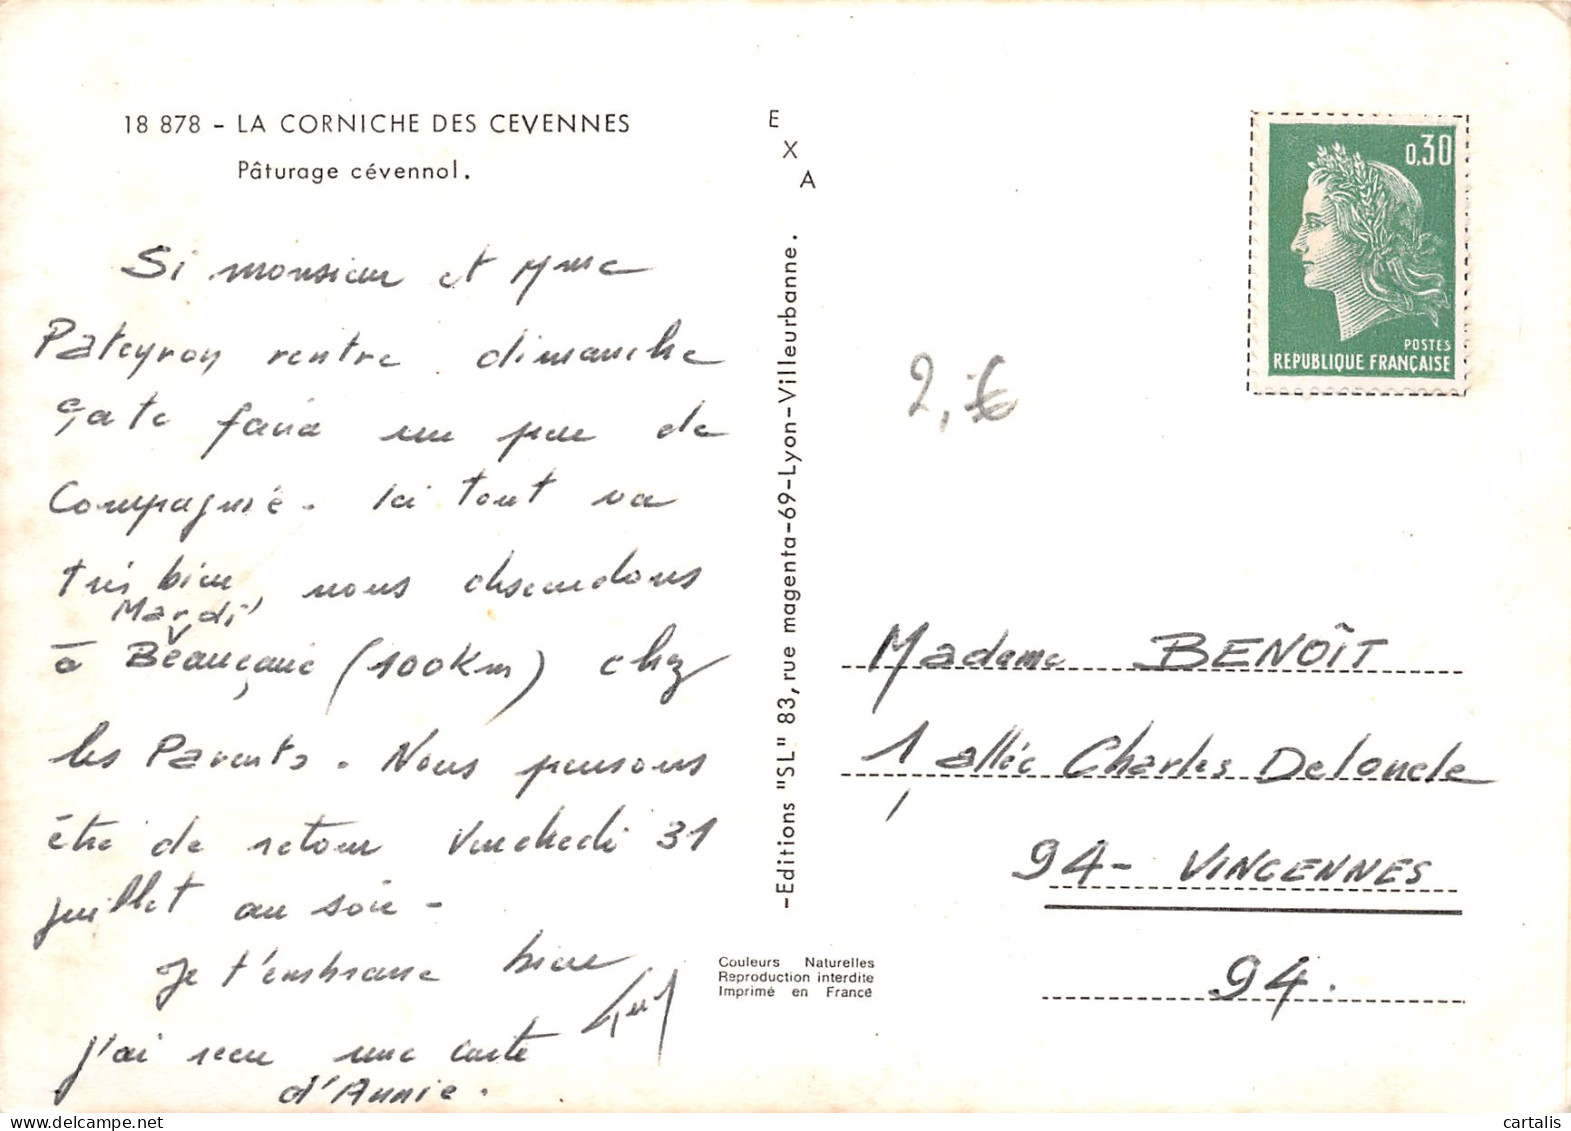 18 878 - LA CORNICHE DES CEVENNES
Pâturage cévennol.
Si monsieur et Mme
Pateyron rentre dimanche
ça te fera un peu de
Compagnie. Ici tout va
très bien, nous descendons
Mardi
à Beaucaire (100Km) chez
les Parents. Nous pensons
être de retour Vendredi 31
juillet au soir -
Je t'embrasse bien
j'ai reçu une carte
d'Annie.
EXA
-Editions "SL" 83, rue magenta-69-Lyon-Villeurbanne.
Couleurs Naturelles
Reproduction interdite
Imprimé en France
0,30
POSTES
REPUBLIQUE FRANÇAISE
2,-€
Madame BENOÎT
1, allée Charles Deloncle
94- VINCENNES
94.
cartalis